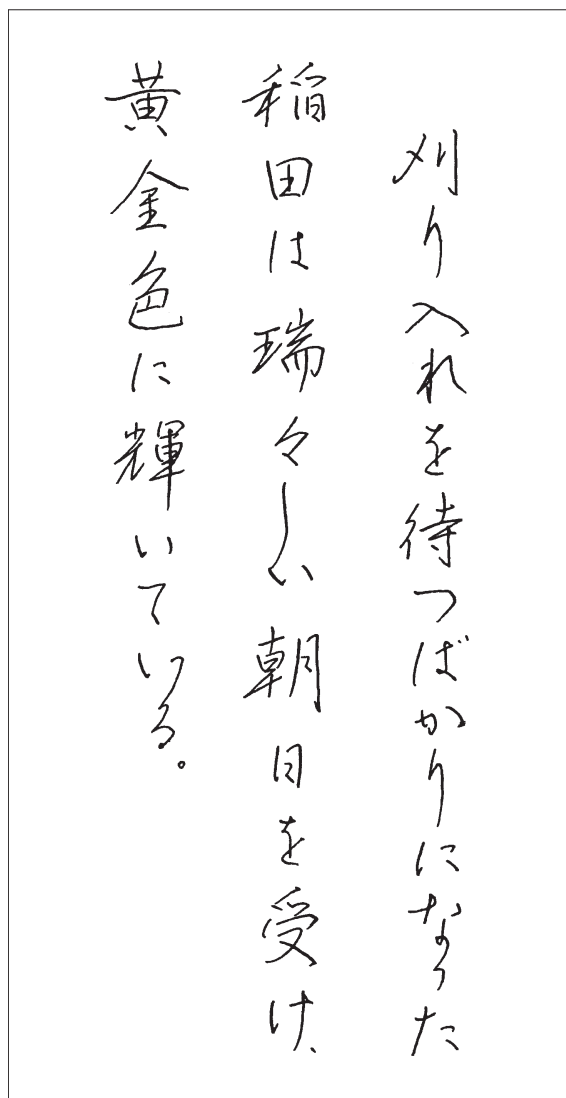 刈り入れを待つばかりになった
稲田は瑞々しい朝日を受け、
黄金色に輝いている。